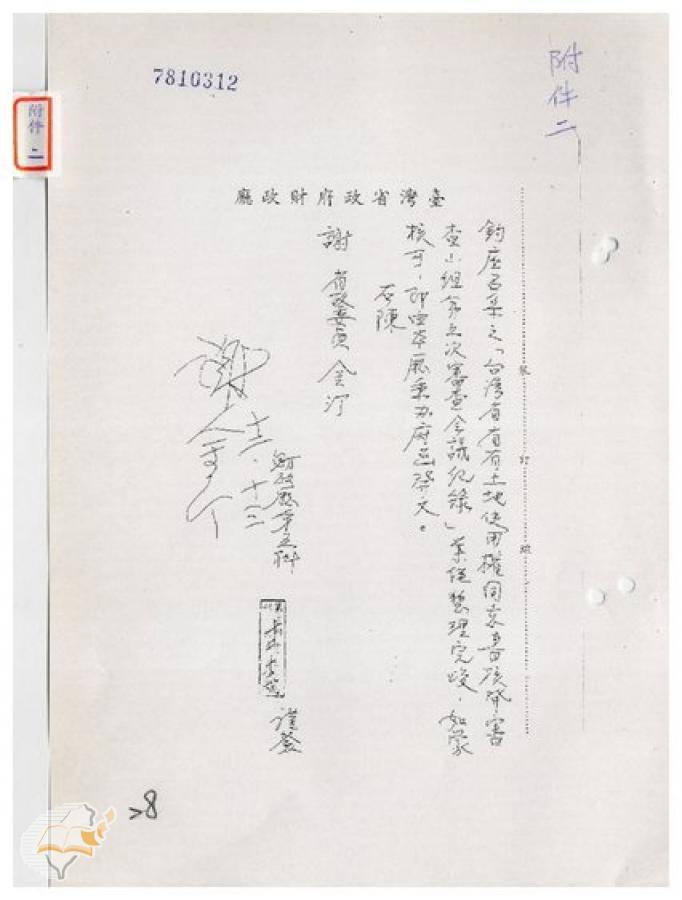 7810312
附件二
附件二
臺灣省政府財政廳
鈞座召集之「台灣省省有土地使用權同意書核發審
查小組第五次審查會議紀錄」業經整理完竣,如蒙
核可,即由本廳秉办府函發文。
右陳
謝 省政委員 金汀
謝金汀
十二.十三
財政廳第五科
謹簽
28
裝
訂
線